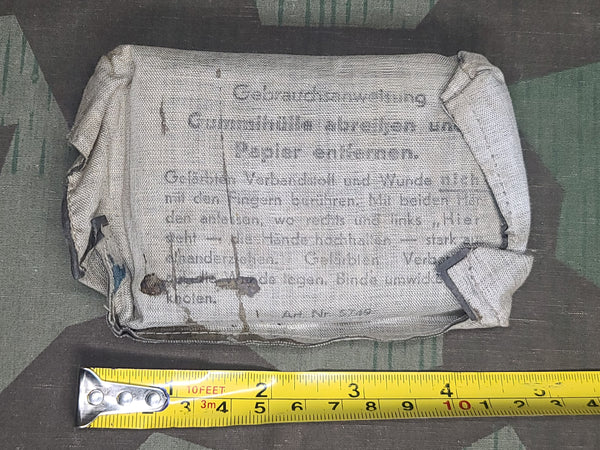 Gebrauchsanweisung
Gummihülle abreißen und
Papier entfernen.
Gefärbten Verbandstoff und Wunde nich
mit den Fingern berühren. Mit beiden Hän
den anfassen, wo rechts und links „Hier
steht — die Hände hochhalten — stark au
einanderziehen. Gefärbten Verba
die Wunde legen. Binde umwickel
knoten.
Art. Nr. 5749
10 FEET 1 2 3 4 5
3m 3 4 5 6 7 8 9 10 1 2 3 4